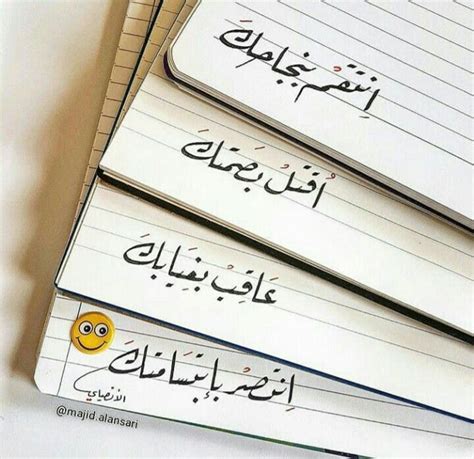 إنتقم بنجاحكَ
اُقتلْ بصمتكَ
عَاقِبْ بغِيَابِكَ
إنتصرْ بإبتسامتكَ
الأنصاري
@majid.alansari